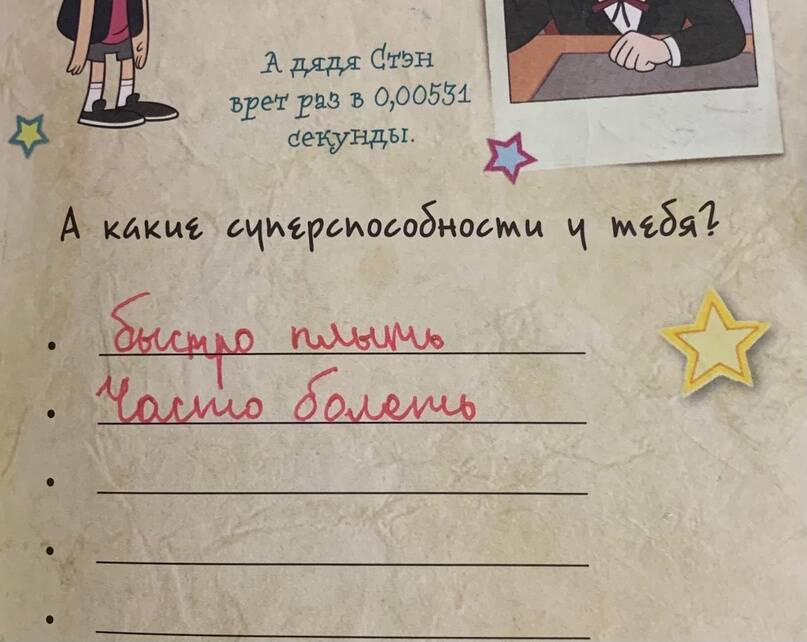 А дядя Стэн
врет раз в 0,00531
секунды.
А какие суперспособности у тебя?
быстро плыть
Часто болеть